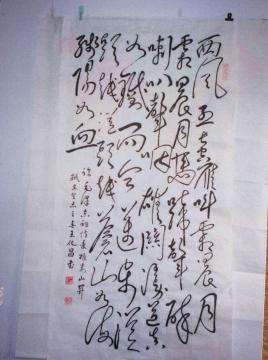 西风烈长空雁叫霜晨月
霜晨月马蹄声碎
喇叭声咽雄关漫道真
如铁而今迈步从
头越从头越苍山如海
残阳如血
毛泽东词忆秦娥娄山关